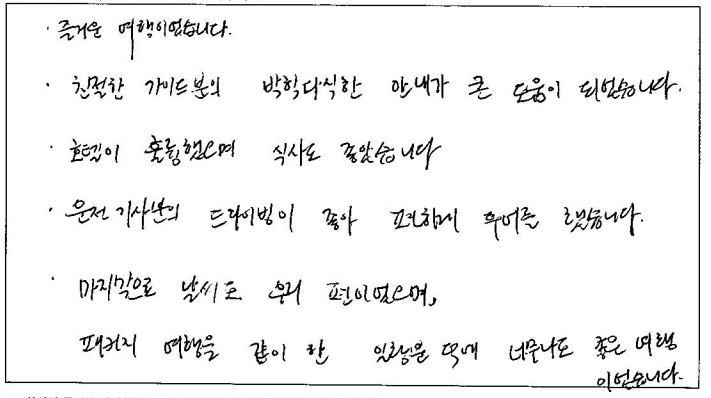 · 즐거운 여행이었습니다.
· 친절한 가이드분의 박학다식한 안내가 큰 도움이 되었습니다.
· 호텔이 훌륭했으며 식사도 좋았습니다
· 운전 기사분의 드라이빙이 좋아 편하게 투어를 했습니다.
· 마지막으로 날씨도 우리 편이었으며,
패키지 여행을 같이 한 일행분 덕에 너무나도 좋은 여행
이었습니다.